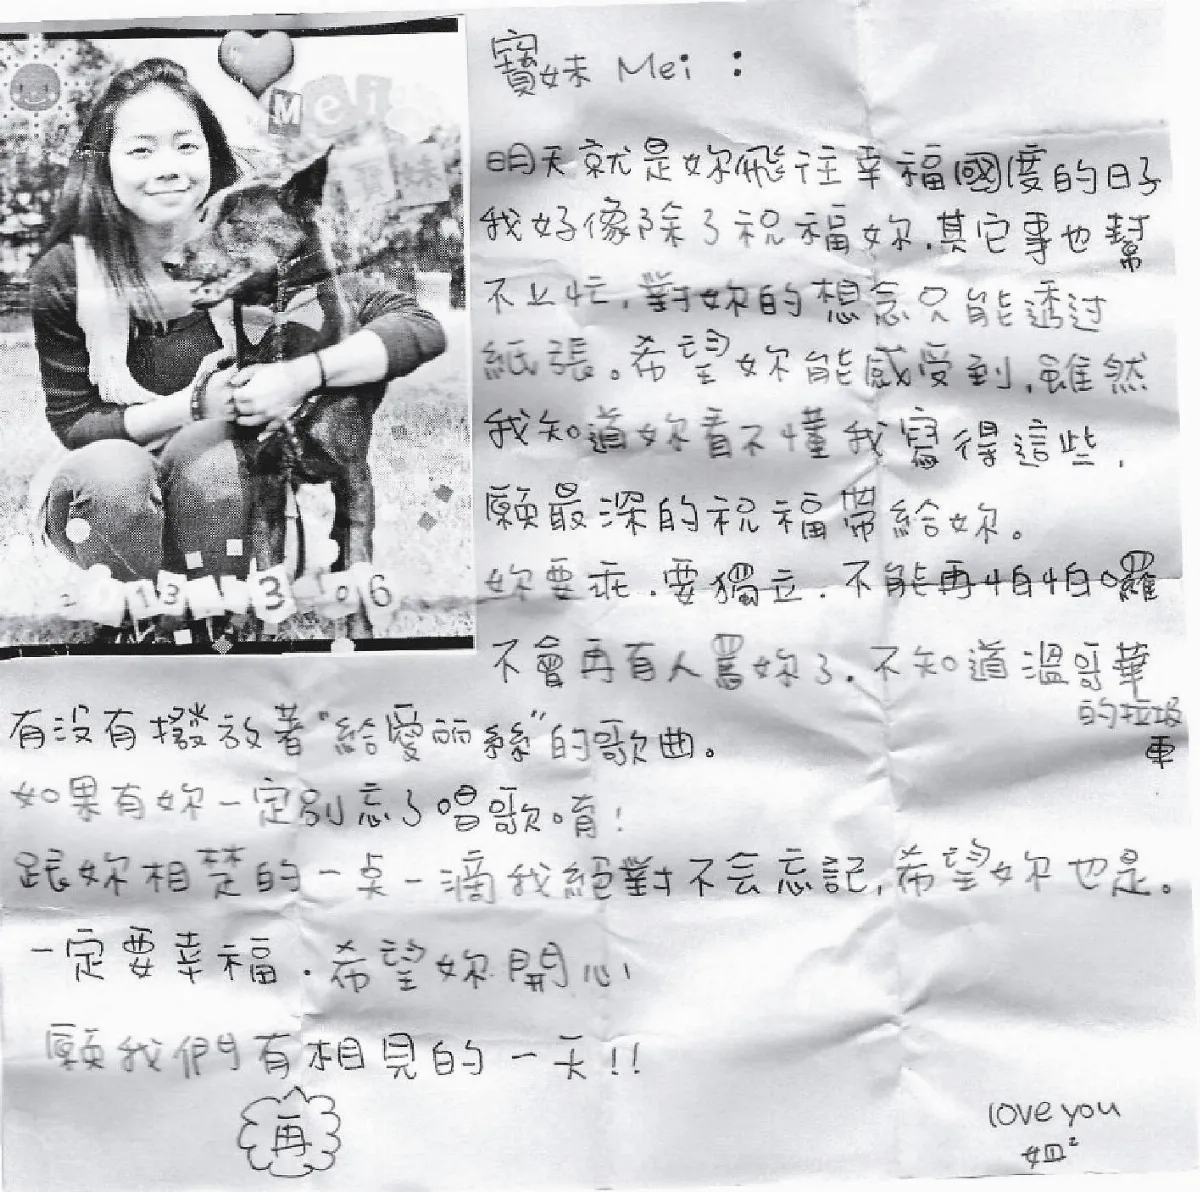 Mei
寶妹
2013 3 06
寶妹 Mei：
明天就是妳飛往幸福國度的日子
我好像除了祝福妳.其它事也幫
不上忙,對妳的想念只能透过
紙張。希望妳能感受到,雖然
我知道妳看不懂我寫得這些,
願最深的祝福帶給妳。
妳要乖.要獨立.不能再怕怕囉
不會再有人罵妳了.不知道溫哥華
的垃圾
車
有没有撥放著"給愛丽絲"的歌曲。
如果有妳一定別忘了唱歌唷!
跟妳相楚的一点一滴我絕對不会忘記,希望妳也是。
一定要幸福.希望妳開心
願我們有相見的一天!!
再
love you
姐²